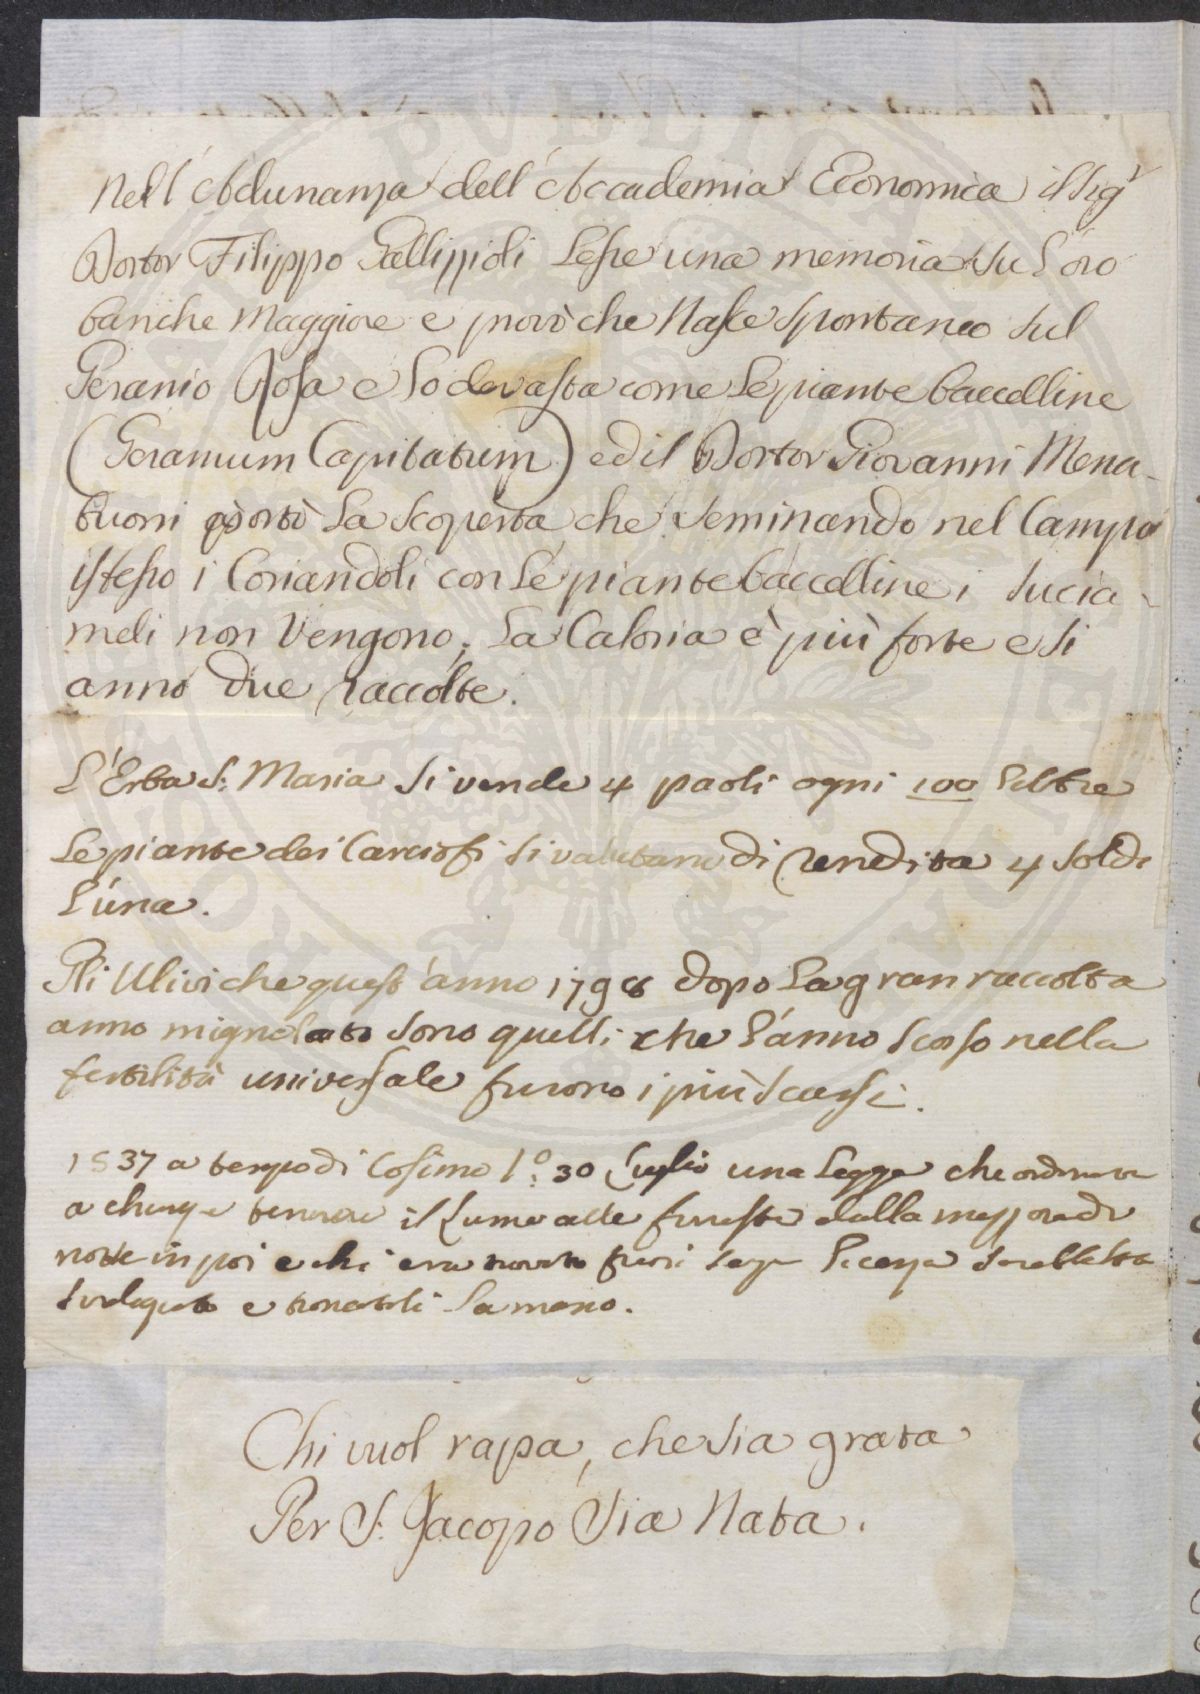 Nell'Adunanza dell'Accademia Economica il Sig.r
Dottor Filippo Gallizzioli Lesse una memoria su L'oro
banche Maggiore e provò che Nasce spontaneo sul
Geranio Rosa e Lo devasta come Le piante baccelline
(Geranium Capitatum) ed il Dottor Giovanni Mena-
buoni portò La scoperta che seminando nel Campo
istesso i Coriandoli con Le piante baccelline i succia-
meli non Vengono; La Caloria è più forte e si
anno due raccolte.
L'Erba S. Maria si vende 4 paoli ogni 100 Libbre
Le piante dei Carciofi si valutano di rendita 4 soldi
L'una.
Gli Ulivi che quest'anno 1798 dopo La gran raccolta
anno mignolato sono quelli che L'anno scorso nella
fertilità universale furono i più scarsi.
1537 a tempo di Cosimo 1.o 30 Luglio una Legge che ordinava
a chiunque tenere il Lume alle finestre dalla mezzora di
notte in poi e chi era trovato fuori senza Licenza sarebbe stato
svaligiato e troncatoli La mano.
Chi vuol rapa, che sia grata
Per S. Jacopo Sia Nata.
PVBLICAE